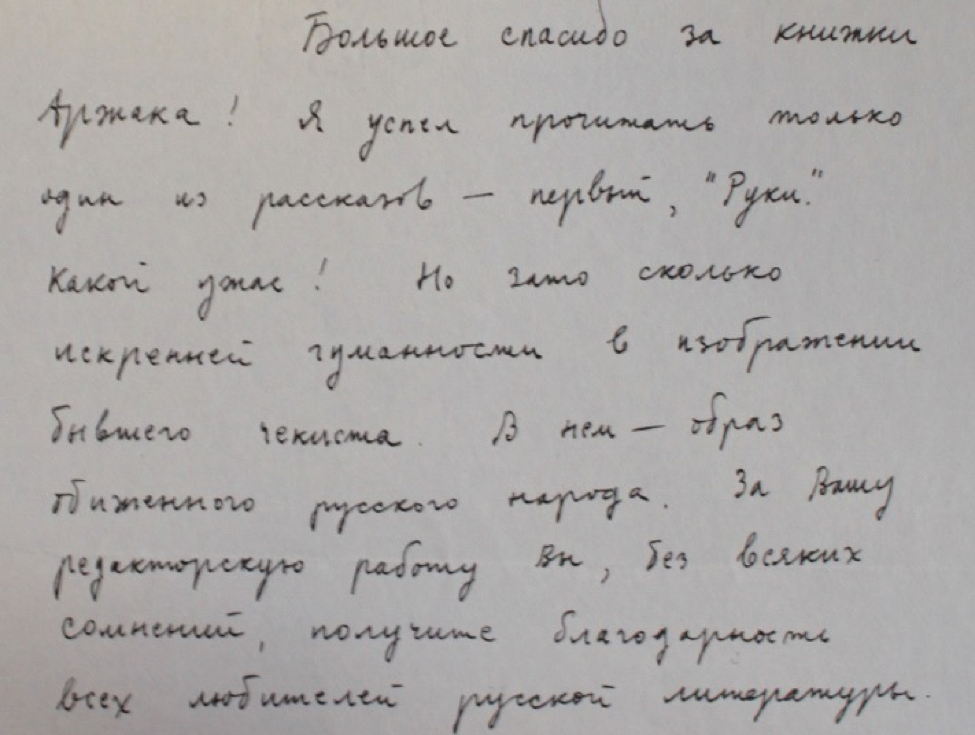 Большое спасибо за книжки
Аржака! Я успел прочитать только
один из рассказов — первый, "Руки."
Какой ужас! Но зато сколько
искренней гуманности в изображении
бывшего чекиста. В нем — образ
обиженного русского народа. За Вашу
редакторскую работу Вы, без всяких
сомнений, получите благодарность
всех любителей русской литературы.